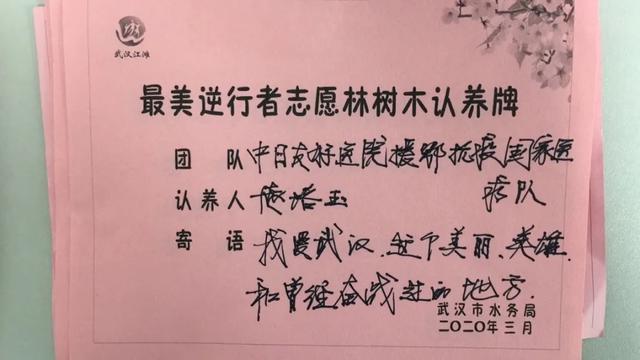 武汉江滩
最美逆行者志愿林树木认养牌
团 队 中日友好医院援鄂抗疫国家医
疗队
认养人
寄 语 我爱武汉.这个美丽、英雄.
和曾经奋战过的地方.
武汉市水务局
二〇二〇年三月